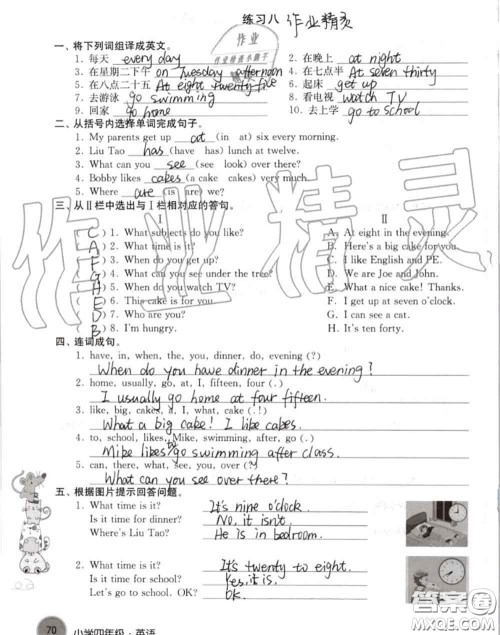 练习八 作业精灵
作业
一、将下列词组译成英文。
1. 每天 every day 2. 在晚上 at night
3. 在星期二下午 on Tuesday afternoon 4. 在七点半 At seven thirty
5. 在八点二十五 At eight twenty-five 6. 起床 get up
7. 去游泳 go swimming 8. 看电视 watch TV
9. 回家 go home 10. 去上学 go to school
二、从括号内选择单词完成句子。
1. My parents get up at (in at) six every morning.
2. Liu Tao has (has have) lunch at twelve.
3. What can you see (see look) over there?
4. Bobby likes cakes (a cake cakes) very much.
5. Where are (is are) we?
三、从Ⅱ栏中选出与Ⅰ栏相对应的答句。
Ⅰ Ⅱ
( C ) 1. What subjects do you like? A. At eight in the evening.
( A ) 2. What time is it? B. Here's a big cake for you.
( F ) 3. When do you get up? C. I like English and PE.
( G ) 4. What can you see under the tree? D. We are Joe and John.
( H ) 5. When do you watch TV? E. What a nice cake! Thanks.
( E ) 6. This cake is for you. F. I get up at seven o'clock.
( D ) 7. Who are you? G. I can see a cat.
( B ) 8. I'm hungry. H. It's ten forty.
四、连词成句。
1. have, in, when, the, you, dinner, do, evening (?)
When do you have dinner in the evening?
2. home, usually, go, at, I, fifteen, four (.)
I usually go home at four fifteen.
3. like, big, cakes, a, I, what, cake (.!)
What a big cake! I like cakes.
4. to, school, likes, Mike, swimming, after, go (.)
Mike likes to go swimming after class.
5. can, there, what, see, you, over (?)
What can you see over there?
五、根据图片提示回答问题。
1. What time is it? It's nine o'clock.
Is it time for dinner? No, it isn't.
Where's Liu Tao? He is in bedroom.
2. What time is it? It's twenty to eight.
Is it time for school? Yes, it is.
Let's go to school. OK? OK.
70 小学四年级·英语
作业精灵